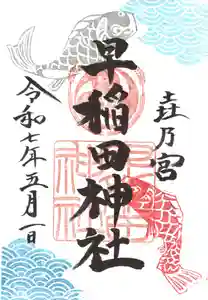 乃宮
早稲田神社
令和七年五月一日